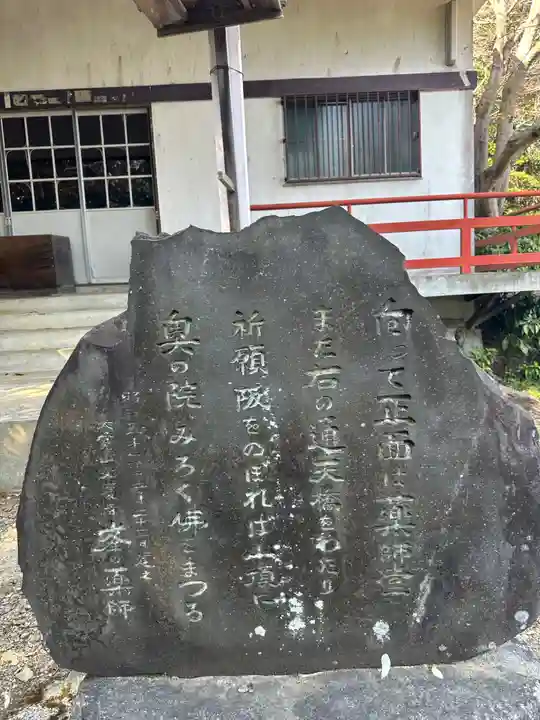 向って正面は薬師堂
また右の通天橋をわたり
祈願阪をのぼれば山頂に
奥の院みろく佛をまつる
昭 五十 年 二十二日 之
峯の薬師